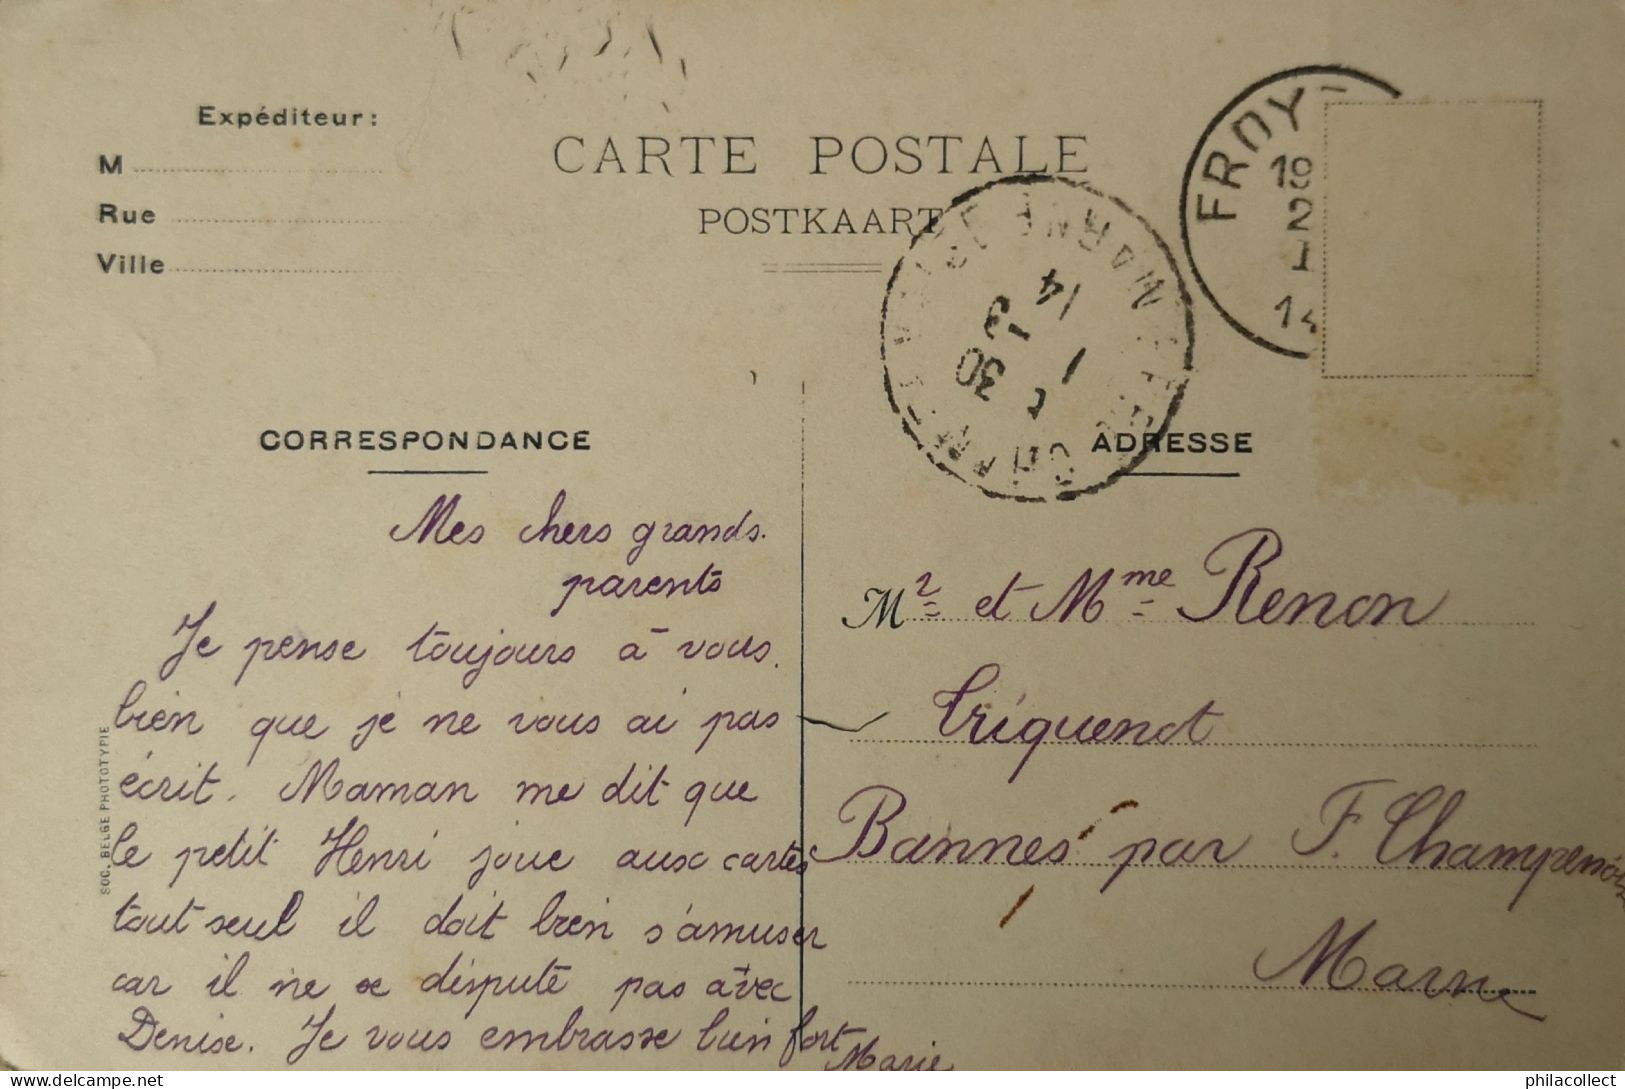 Expéditeur :
M
Rue
Ville
CARTE POSTALE
POSTKAART
FROY
19
2
1
14
MARNE
14
13
1
30
CORRESPONDANCE
ADRESSE
Mes chers grands.
parents
Je pense toujours à vous.
bien que je ne vous ai pas
écrit. Maman me dit que
le petit Henri joue aux cartes
tout seul il doit bien s'amuser
car il ne se dispute pas avec
Denise. Je vous embrasse bien fort
Marie
Mr et Mme Renon
Triquenot
Bannes par F. Champenoise
Marne
SOC. BELGE PHOTOTYPIE
philacollect